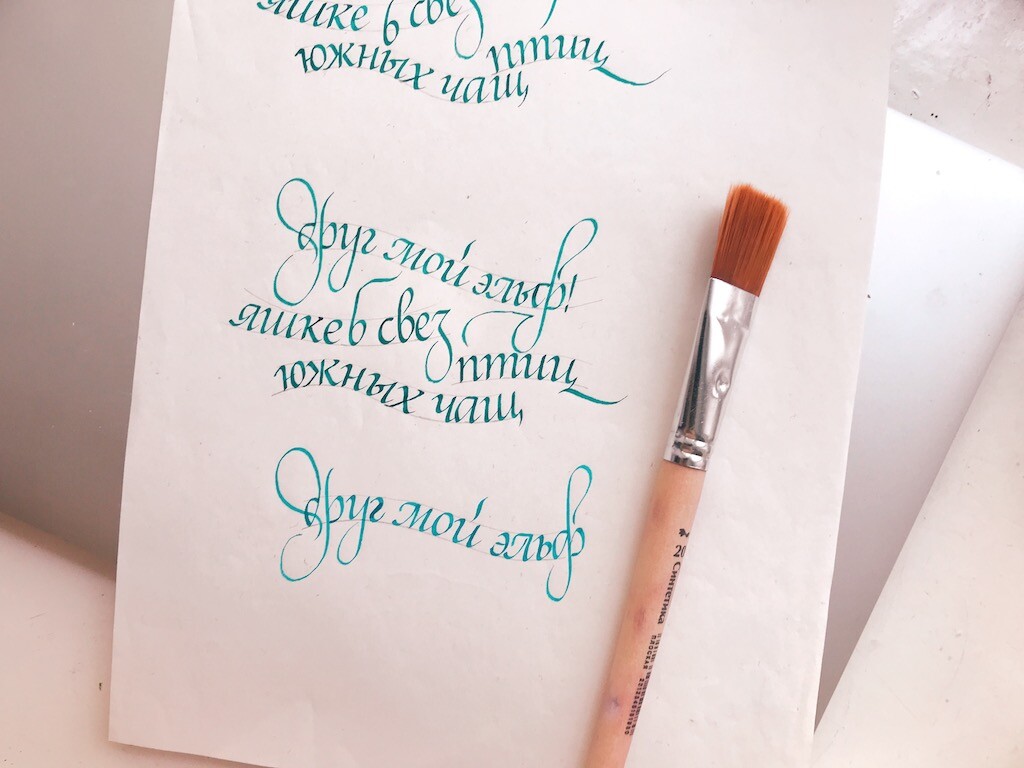 яшке б свез птиц
южных чащ
друг мой эльф!
яшке б свез птиц
южных чащ
друг мой эльф
20 Синтетика
плоская